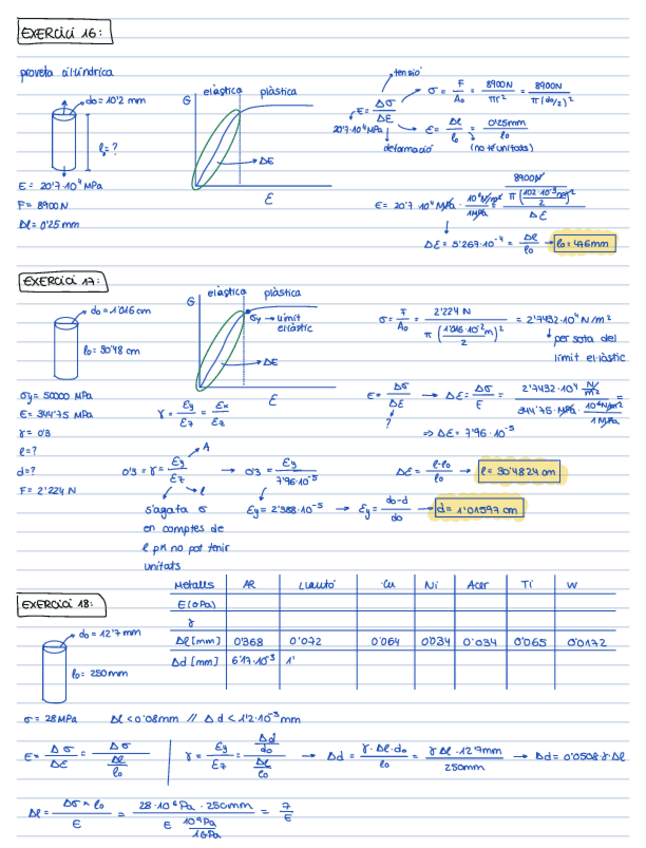 EXERCICI 16:
proveta cilíndrica
d₀ = 10'2 mm
l₀ = ?
E = 20'7·10⁴ MPa
F = 8900 N
Δl = 0'25 mm
elàstica plàstica
σ
ΔE
ε
tensió
E = Δσ/Δε
20'7·10⁴ MPa
deformació
σ = F/A₀ = 8900N/πr² = 8900N/π(d₀/2)²
ε = Δl/l₀ = 0'25mm/l₀
(no té unitats)
E = 20'7·10⁴ MPa · 10⁶N/m²/1MPa = 8900N/π(10'2·10⁻³m/2)²/Δε
Δε = 5'267·10⁻⁴ = Δl/l₀ → l₀ = 476mm
EXERCICI 17:
d₀ = 1'016 cm
l₀ = 30'48 cm
σy = 50000 MPa
E = 344'75 MPa
γ = 0'3
l = ?
d = ?
F = 2'224 N
elàstica plàstica
σ
σy → límit elàstic
ΔE
ε
σ = F/A₀ = 2'224 N/π(1'016·10⁻²m/2)² = 2'7432·10⁴ N/m²
per sota del
límit el·làstic
γ = εy/εz = εx/εz
E = Δσ/Δε → Δε = Δσ/E = 2'7432·10⁴ N/m²/344'75·MPa·10⁶N/m²/1MPa =
?
⇒ Δε = 7'96·10⁻⁵
0'3 = γ = εy/εz → 0'3 = εy/7'96·10⁻⁵
A
l
Δε = l-l₀/l₀ → l = 30'4824 cm
s'agafa σ
en comptes de
l pk no pot tenir
unitats
εy = 2'388·10⁻⁵ → εy = d₀-d/d₀ → d = 1'01597 cm
EXERCICI 18:
d₀ = 12'7 mm
l₀ = 250 mm
Metalls AR Llautó Cu Ni Acer Ti W
E (GPa)
γ
Δl [mm] 0'368 0'072 0'064 0'034 0'034 0'065 0'0172
Δd [mm] 6'17·10⁻³ 1'
σ = 28 MPa Δl < 0'08mm // Δd < 1'2·10⁻³ mm
E = Δσ/Δε = Δσ/Δl/l₀
γ = εy/εz = Δd/d₀/Δl/l₀ → Δd = γ·Δl·d₀/l₀ = γ Δl·12'7mm/250mm → Δd = 0'0508·γ·Δl
Δl = Δσ × l₀/E = 28·10⁶Pa · 250mm/E 10⁹Pa/1GPa = 7/E